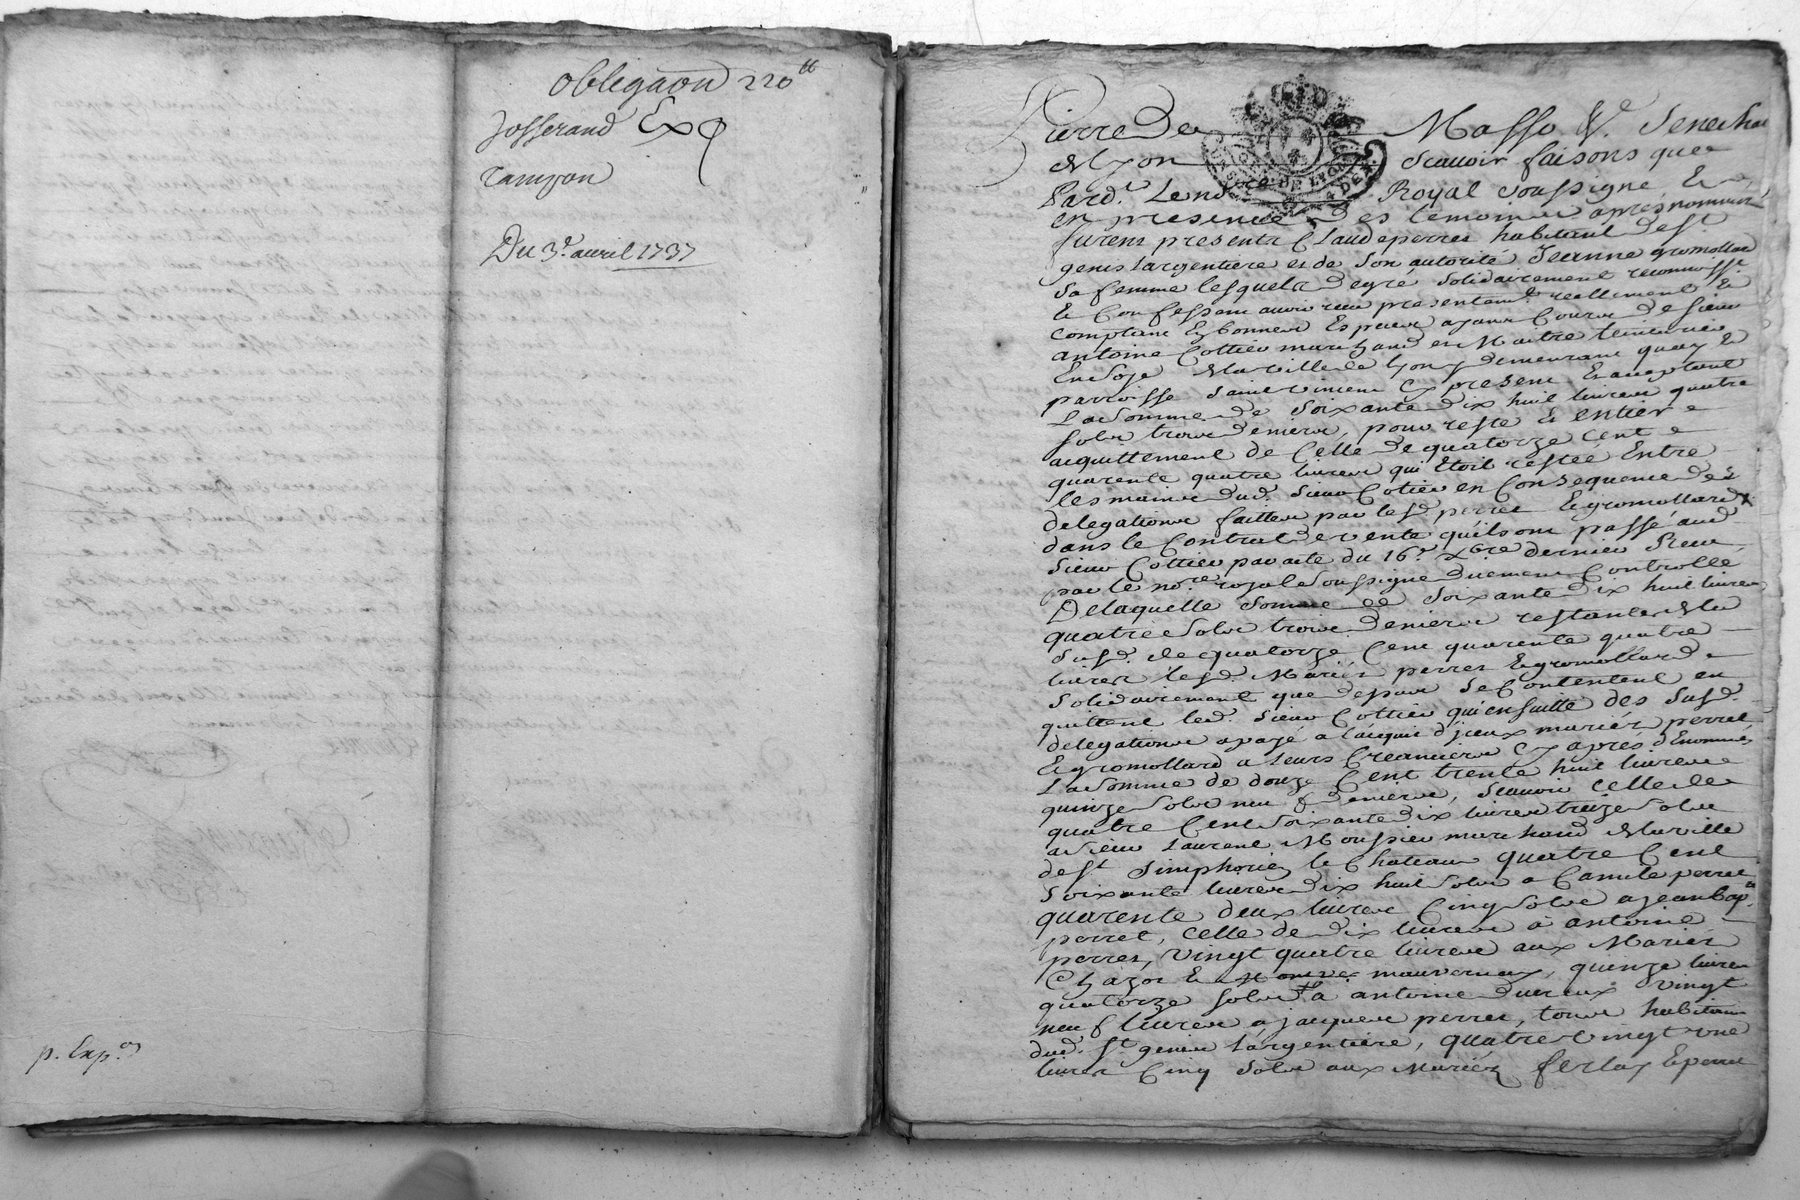 obligaõn 220ᵗᵗ
Josserand Exp
rampon
Du 3ᵉ. avril 1737
p. Exp.ᵒⁿ
Pierre De Masso &ᶜ. Senechal
de Lyon Scavoir faisons que
Pard.ᵗ Le nore. Royal soussigné &
en presence des temoins apres nommés
furent presents Claude perret habitant de Sᵗ
genis l'argentiere et de son autorité Jeanne gromollard
sa femme lesquels de gré solidairement reconnoisse.ᵗ
& Confessent avoir receu presentem.ᵗ reellement &
comptant En bonnes Especes ayant Cours de sieur
antoine Cottier marchand et Maitre teinturier
En soye de la ville de lyon y demeurant quay &
parroisse Saint vincent Cy present & acceptant
La Somme de Soixante dix huit livres quatre
sols trois deniers, pour reste & entier
acquittement de Celle de quatorze Cent
quarente quatre livres qui Etoit restée Entre
les mains dud. sieur Cotier en Consequence des
delegations faittes par lesd. perret & gromollard
dans le Contrat de vente qu'ils ont passé aud.
Sieur Cottier par acte du 16ᵉ. Xbre dernier Receu
par le nore. royal Soussigné duement Controllé
De laquelle Somme de Soixante dix huit livres
quatre Sols trois deniers restante de la
Susd. de quatorze Cent quarente quatre
livres lesd. Mariés perret & gromollard
Solidairement que dessus Se Contentent en
quittent led. Sieur Cottier qui en suitte des Susd.
delegations a payé a l'acquit d'jceux mariés perret
& gromollard a leurs Creanciers Cy après dénommés
La Somme de douze Cent trente huit livres
quinze Sols neuf deniers, Scavoir Celle de
quatre Cent Soixante dix livres treize Sols
a Sieur Laurent Moussier marchand de la ville
de Sᵗ Simphorien le Chateau quatre Cent
Soixante livres dix huit Sols a Camile perret
quarente deux livres Cinq Sols a jean Bap.ᵗᵉ
perret, Celle de dix livres à antoine
perret, vingt quatre livres aux Mariés
Chazot & mauvernay, quinze livres
quatorze Sols a antoine vingt
neuf livres a jacques perret, tous habitans
dud. Sᵗ genis l'argentiere, quatre vingt une
livres Cinq Sols aux Mariés ferlay & perret